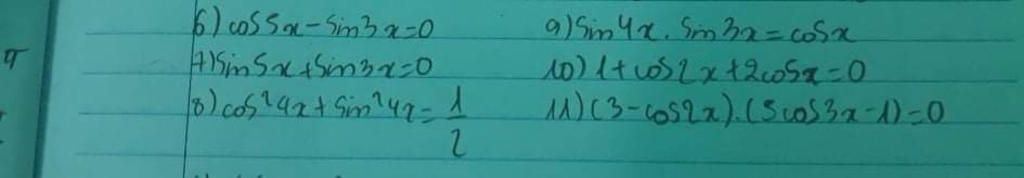 6) cos5x - sin3x = 0
7) sin5x + sin3x = 0
8) cos²4x + sin²4x = 1/2
9) sin4x . sin3x = cosx
10) 1 + cos2x + 2cosx = 0
11) (3 - cos2x).(3cos3x - 1) = 0